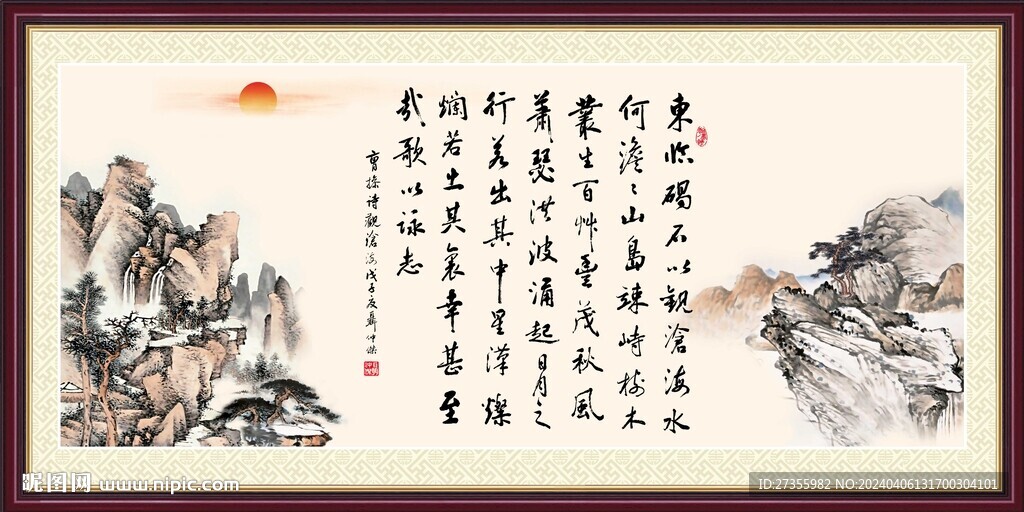 東临碣石以觀滄海水
何澹〻山島竦峙樹木
叢生百艸豊茂秋風
蕭瑟洪波涌起日月之
行若出其中星漢燦
爛若土其裏幸甚至
哉歌以詠志
曹操诗觀滄海戊子夏聶仲傑
昵图网 www.nipic.com
ID:27355982 NO:20240406131700304101